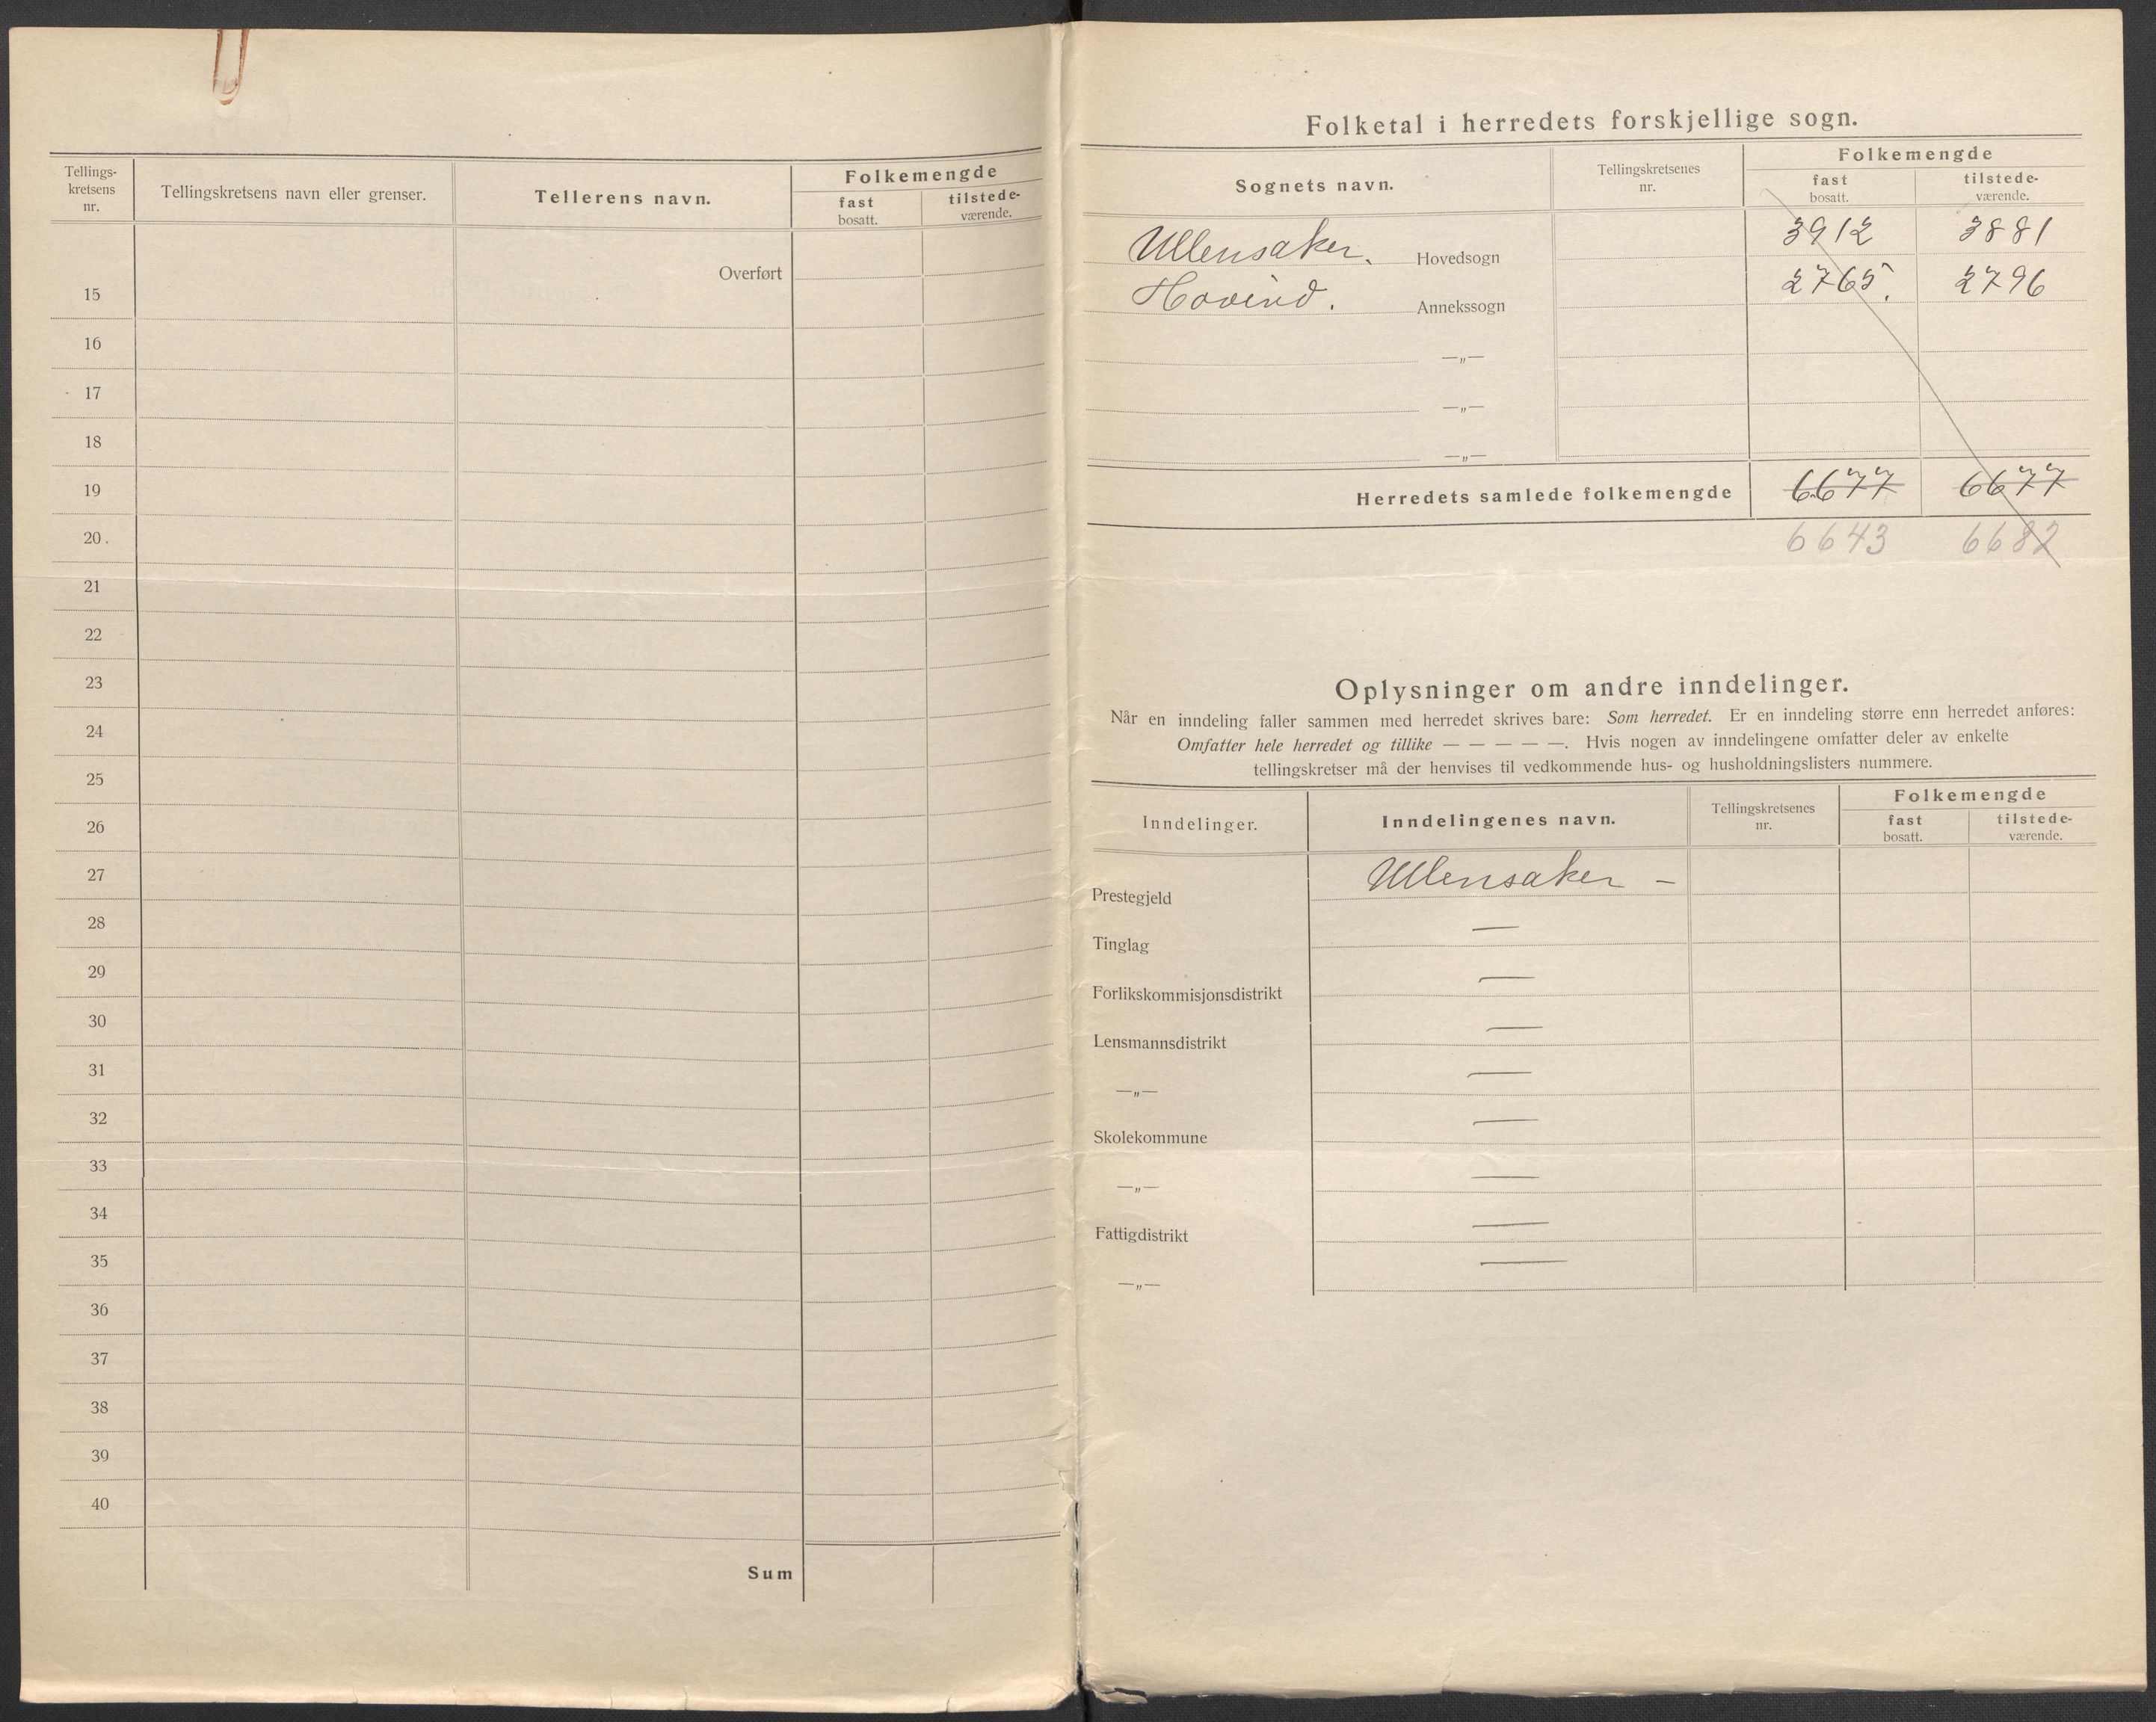 Tellings-
kretsens
nr.
Tellingskretsens navn eller grenser.
Tellerens navn.
Folkemengde
fast
bosatt.
tilstede-
værende.
Overført
15
16
17
18
19
20.
21
22
23
24
25
26
27
28
29
30
31
32
33
34
35
36
37
38
39
40
Sum
Folketal i herredets forskjellige sogn.
Sognets navn.
Tellingskretsenes
nr.
Folkemengde
fast
bosatt.
tilstede-
værende.
Ullensaker. Hovedsogn 3912 3881
Hovind. Annekssogn 2765. 2796
—„—
—„—
—„—
Herredets samlede folkemengde 6677 6677
6643 6682
Oplysninger om andre inndelinger.
Når en inndeling faller sammen med herredet skrives bare: Som herredet. Er en inndeling større enn herredet anføres:
Omfatter hele herredet og tillike — — — — —. Hvis nogen av inndelingene omfatter deler av enkelte
tellingskretser må der henvises til vedkommende hus- og husholdningslisters nummere.
Inndelinger.
Inndelingenes navn.
Tellingskretsenes
nr.
Folkemengde
fast
bosatt.
tilstede-
værende.
Prestegjeld Ullensaker –
Tinglag —
Forlikskommisjonsdistrikt —
Lensmannsdistrikt —
—„— —
Skolekommune —
—„— —
Fattigdistrikt —
—„— —